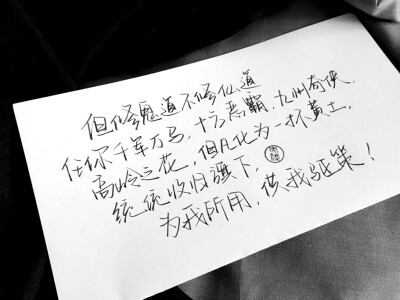 但修鬼道不修仙道
任你千军万马,十方恶霸,九州奇侠,
高岭之花,但凡化为一抔黄土,
统统收归旗下,
为我所用,供我驱策!